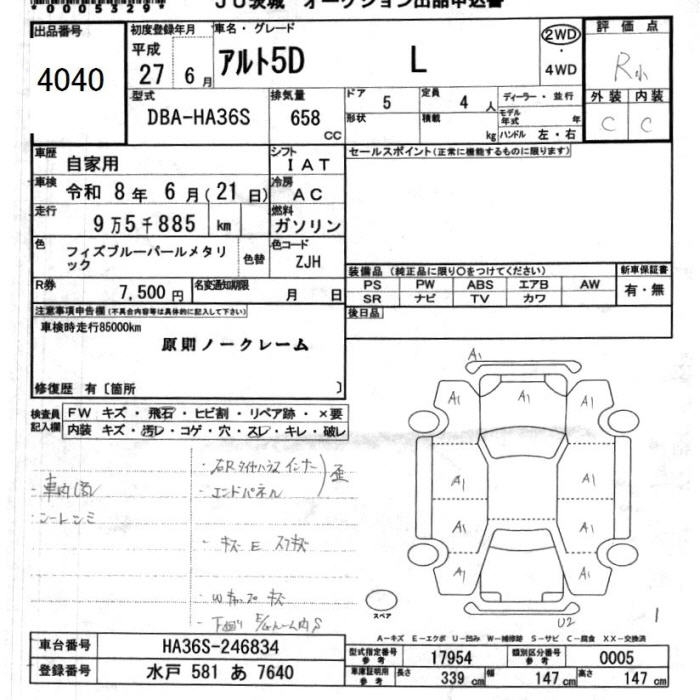 0005329
JU茨城 オークション出品申込書
出品番号
4040
初度登録年月
平成
27 6月
車名・グレード
アルト5D L
2WD
・
4WD
評価点
R小
外装 内装
C C
型式
DBA-HA36S
排気量
658 CC
ドア 5
定員 4 人
形状
積載 kg
ディーラー・並行
モデル年式 年
ハンドル 左・右
車歴
自家用
シフト
IAT
車検
令和 8年 6月(21日)
冷房
AC
走行
9万5千885 km
燃料
ガソリン
色
フィズブルーパールメタリック
色替
色コード
ZJH
R券
7,500円
名変通知期限
月 日
セールスポイント(正常に機能するものに限ります)
装備品(純正品に限り○をつけてください)
新車保証書
PS PW ABS エアB AW
有・無
SR ナビ TV カワ
後日品
注意事項申告欄(不具合内容等は具体的に記入して下さい)
車検時走行85000km
原則ノークレーム
修復歴 有〔箇所 〕
検査員記入欄
FW キズ・飛石・ヒビ割・リペア跡・×要
内装 キズ・汚レ・コゲ・穴・スレ・キレ・破レ
・エンドパネル
歪
・下廻り
スペア
A1
A1
A1
A1
A1
A1
A1
A1
A1
A1
U2
1
A-キズ E-エクボ U-凹み W-補修跡 S-サビ C-腐食 XX-交換済
車台番号 HA36S-246834
登録番号 水戸 581 あ 7640
型式指定番号 参考 17954
類別区分番号 参考 0005
車庫証明用 参考
長さ 339 cm 幅 147 cm 高さ 147 cm